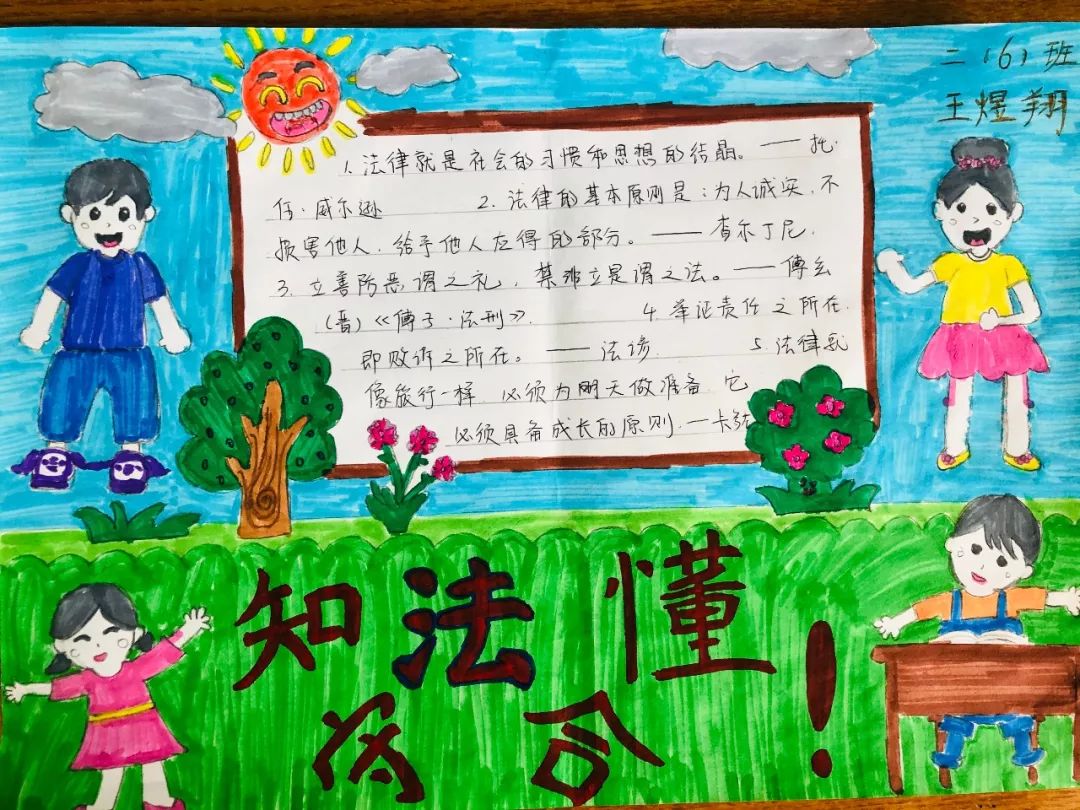 二(6)班
王煜翔
1.法律就是社会的习惯和思想的结晶。——托.
伍·威尔逊 2.法律的基本原则是:为人诚实,不
损害他人,给予他人应得的部分。——查尔丁尼.
3.立善防恶谓之礼,禁非立是谓之法。——傅玄
(晋)《傅子·法刑》. 4.举证责任之所在.
即败诉之所在。——法谚. 5.法律就
像旅行一样 必须为明天做准备 它
必须具备成长的原则.—卡
知法懂